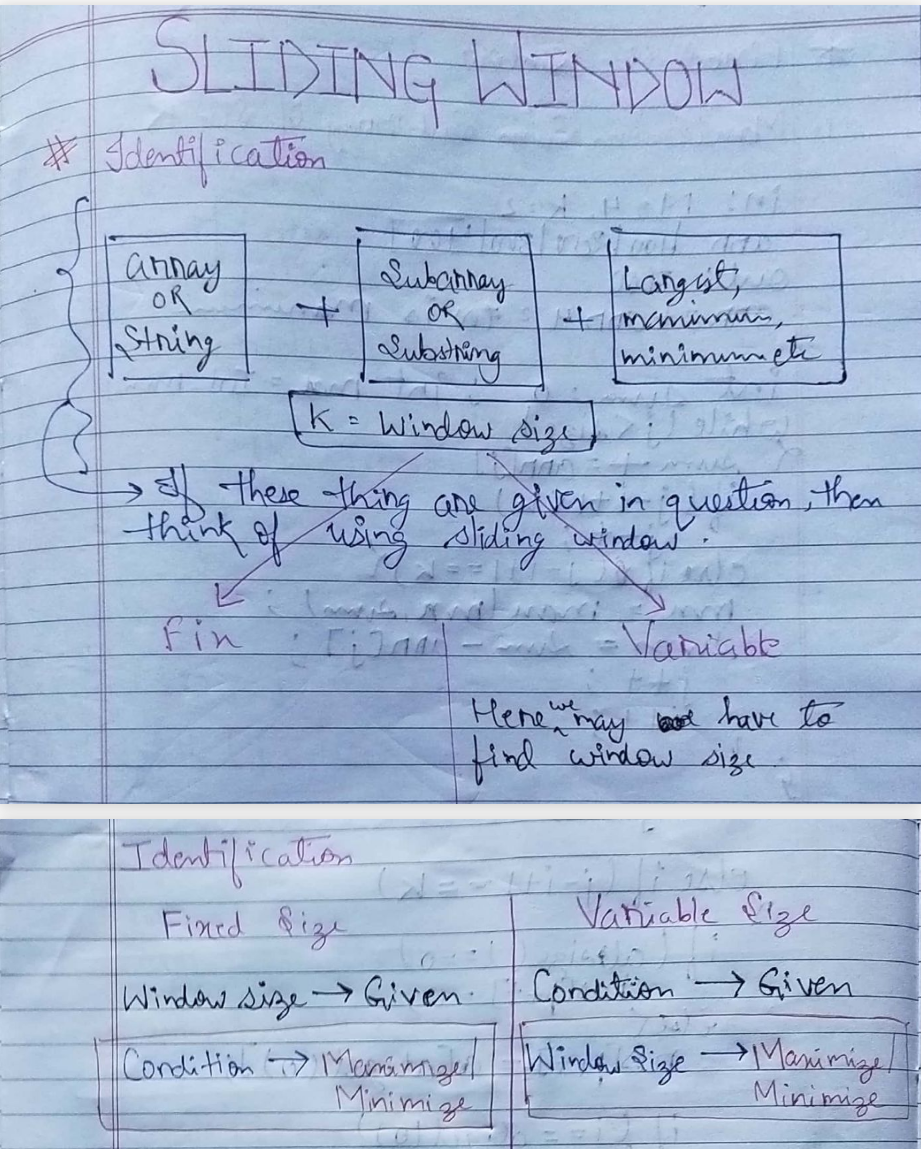 SLIDING WINDOW
# Identification
array
OR
String
+
Subarray
OR
Substring
+
Largest,
maximum,
minimum etc
K = Window size
→ If these thing are given in question, then
think of using sliding window.
Fix
Variable
Here we may have to
find window size
Identification
Fixed Size
Window size → Given.
Condition → Maximize/
Minimize
Variable Size
Condition → Given
Window Size → Maximize/
Minimize